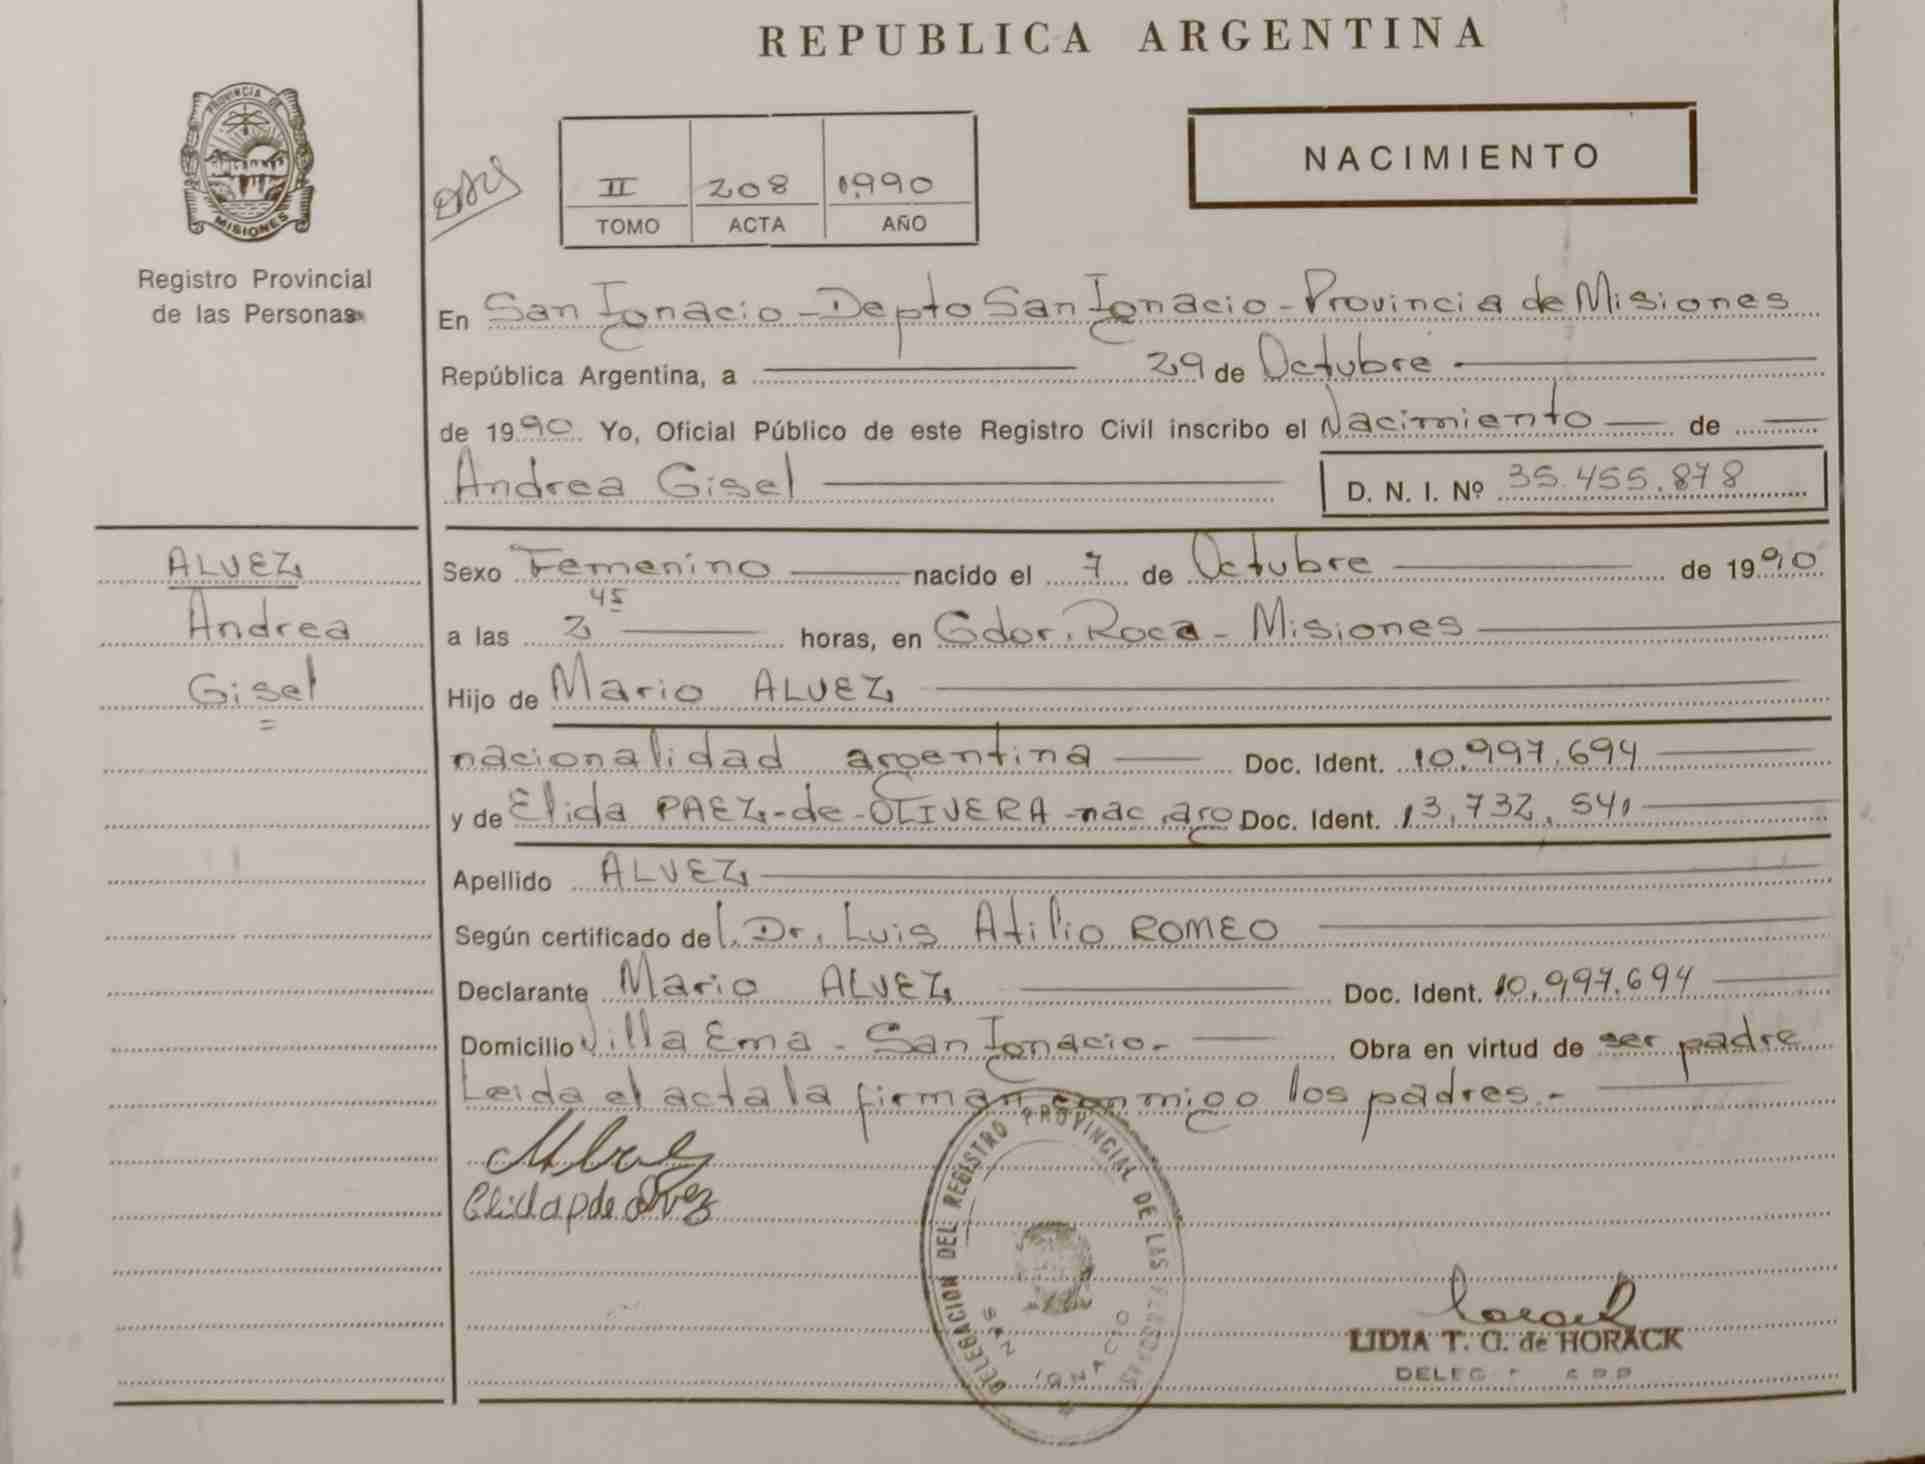 REPUBLICA ARGENTINA
PROVINCIA DE
MISIONES
Registro Provincial
de las Personas
II 208 1990
TOMO ACTA AÑO
NACIMIENTO
En San Ignacio - Depto San Ignacio - Provincia de Misiones
República Argentina, a 29 de Octubre
de 1990 Yo, Oficial Público de este Registro Civil inscribo el Nacimiento de
Andrea Gisel
D. N. I. Nº 35.455.878
ALVEZ
Andrea
Gisel
Sexo Femenino nacido el 7 de Octubre de 1990
a las 2 45 horas, en Gdor. Roca - Misiones
Hijo de Mario ALVEZ
nacionalidad argentina Doc. Ident. 10.997.694
y de Elida PAEZ-de-OLIVERA-nac.arg Doc. Ident. 13.732.541
Apellido ALVEZ
Según certificado del. Dr. Luis Atilio ROMEO
Declarante Mario ALVEZ Doc. Ident. 10.997.694
Domicilio Villa Ema - San Ignacio.- Obra en virtud de ser padre
Leida el acta la firman conmigo los padres.-
DELEGACION DEL REGISTRO PROVINCIAL DE LAS PERSONAS
SAN IGNACIO
LIDIA T. G. de HORACK